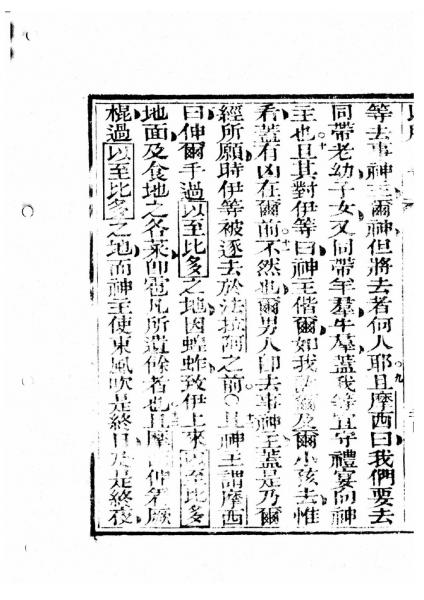 等去事神主爾神但將去者何人耶且摩西曰我們要去
同帶老幼子女又同帶羊羣牛羣蓋我等宜守禮宴向神
主也且其對伊等曰神主偕爾如我爾及爾小孩去惟
看蓋有凶在爾前不然也爾男人卽去事神主蓋是乃爾
經所願時伊等被逐去於法拉阿之前〇且神主謂摩西
曰伸爾手過以至比多之地因蝗蚱致伊上來以至比多
地面及食地之各菜卽雹凡所遺餘者也且摩西伸着厥
棍過以至比多之地而神主使東風吹是終日及是終夜